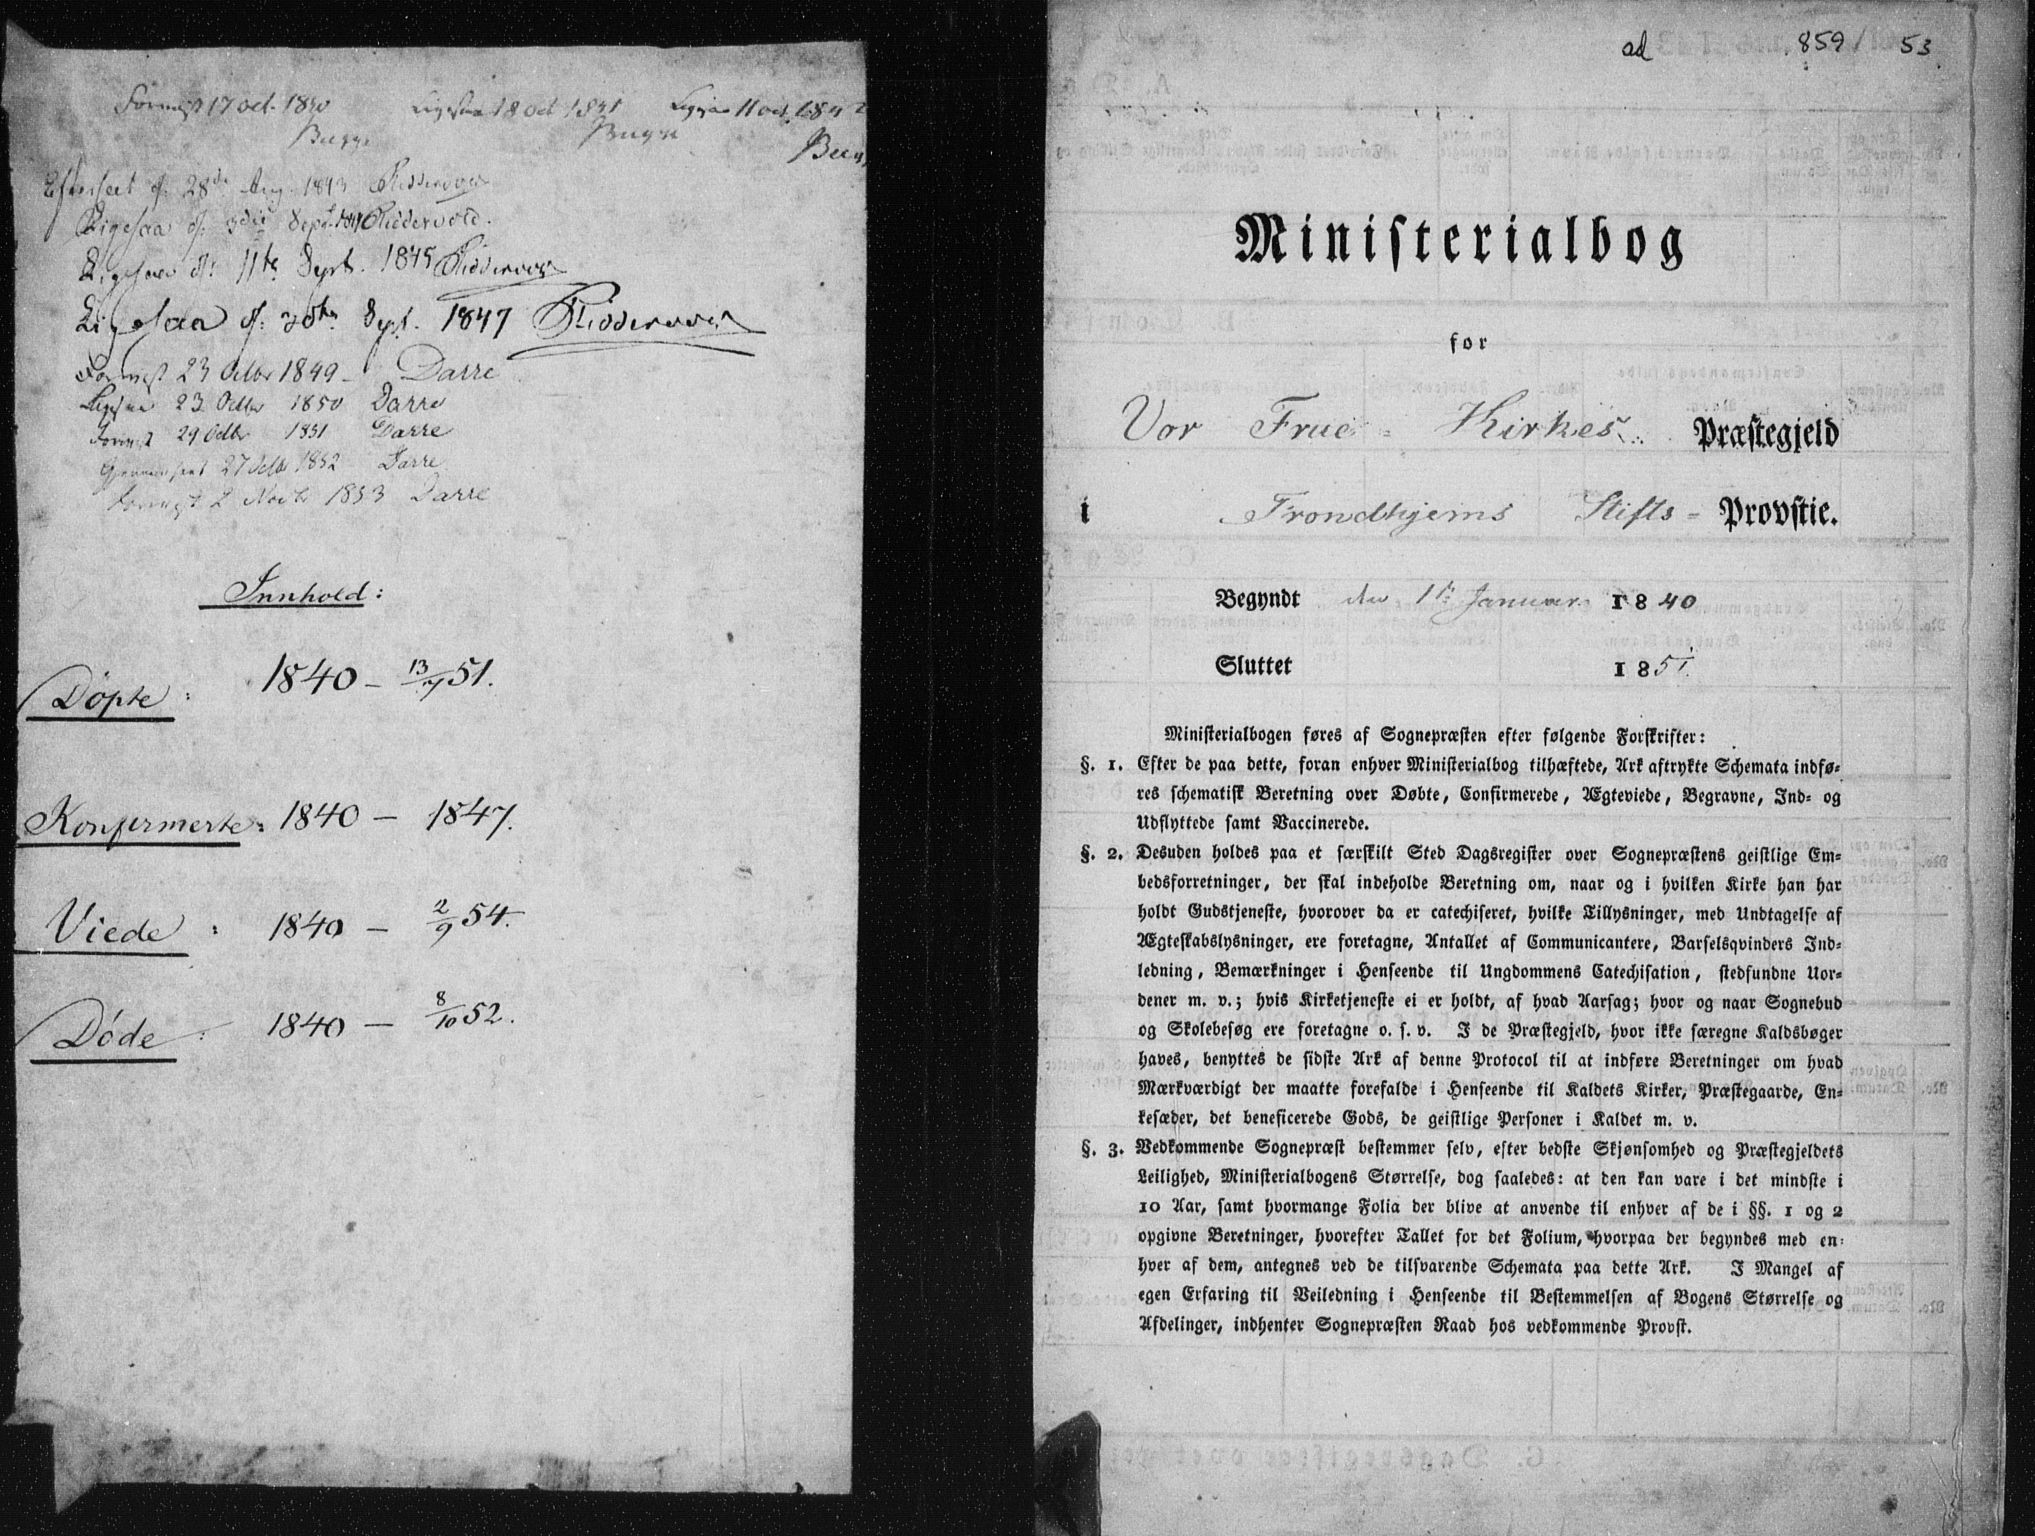 17 Oct. 1840
18 Oct 1841
11 Oct. 1842
Bugge
Bugge
Efterseet d. 28de Aug. 1843 Riddervold
Ligesaa d. 3die Septr. 1844 Riddervold.
Ligesaa d. 11te Septb. 1845 Riddervold
Ligesaa d. 30te Sept. 1847 Riddervold
Forevist 23 Octbr 1849 - Darre
Ligesaa 23 Octbr 1850 Darre
Forevist 29 Octbr 1851 Darre
Gjennemseet 27 Octbr 1852 Darre
Forevist 2 Novbr 1853 Darre
Innhold:
Døpte: 1840 - 13/7 51.
Konfirmerte: 1840 - 1847.
Viede: 1840 - 2/9 54.
Døde: 1840 - 8/10 52.
ad 859/53
Ministerialbog
for
Vor Frue - Kirkes Præstegjeld
i Trondhjems Stifts - Provstie.
Begyndt den 1te Januar 1840
Sluttet 1851.
Ministerialbogen føres af Sognepræsten efter følgende Forskrifter:
§. 1. Efter de paa dette, foran enhver Ministerialbog tilhæftede, Ark aftrykte Schemata indfø-
res schematisk Beretning over Døbte, Confirmerede, Ægteviede, Begravne, Ind- og
Udflyttede samt Vaccinerede.
§. 2. Desuden holdes paa et særskilt Sted Dagsregister over Sognepræstens geistlige Em-
bedsforretninger, der skal indeholde Beretning om, naar og i hvilken Kirke han har
holdt Gudstjeneste, hvorover da er catechiseret, hvilke Tillysninger, med Undtagelse af
Ægteskabslysninger, ere foretagne, Antallet af Communicantere, Barselsqvinders Ind-
ledning, Bemærkninger i Henseende til Ungdommens Catechisation, stedfundne Uor-
dener m. v.; hvis Kirketjeneste ei er holdt, af hvad Aarsag; hvor og naar Sognebud
og Skolebesøg ere foretagne o. s. v. I de Præstegjeld, hvor ikke særegne Kaldsbøger
haves, benyttes de sidste Ark af denne Protocol til at indføre Beretninger om hvad
Mærkværdigt der maatte forefalde i Henseende til Kaldets Kirker, Præstegaarde, En-
kesæder, det beneficerede Gods, de geistlige Personer i Kaldet m. v.
§. 3. Vedkommende Sognepræst bestemmer selv, efter bedste Skjønsomhed og Præstegjeldets
Leilighed, Ministerialbogens Størrelse, dog saaledes: at den kan vare i det mindste i
10 Aar, samt hvormange Folia der blive at anvende til enhver af de i §§. 1 og 2
opgivne Beretninger, hvorefter Tallet for det Folium, hvorpaa der begyndes med en-
hver af dem, antegnes ved de tilsvarende Schemata paa dette Ark. I Mangel af
egen Erfaring til Veiledning i Henseende til Bestemmelsen af Bogens Størrelse og
Afdelinger, indhenter Sognepræsten Raad hos vedkommende Provst.